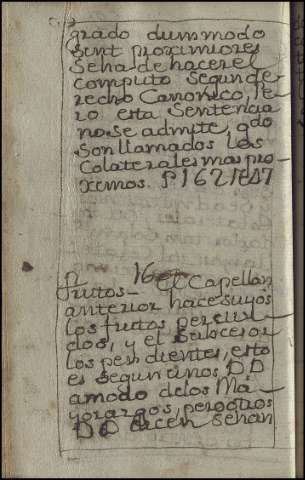 grado dummodo
sint proximiores
Se ha de hacer el
computo Segun de-
recho Canonico, Pe-
ro esta Sentencia
no se admite, qdo
son llamados los
Colaterales mas pro-
ximos. P 162
16
fruttos - El Capellan
anterior hace suyos
los fruttos, percivi-
dos, y el Subcesor
los pendientes, esto
es segun unos DD
a modo de los Ma-
yorazgos, pero otros
DD dicen se han